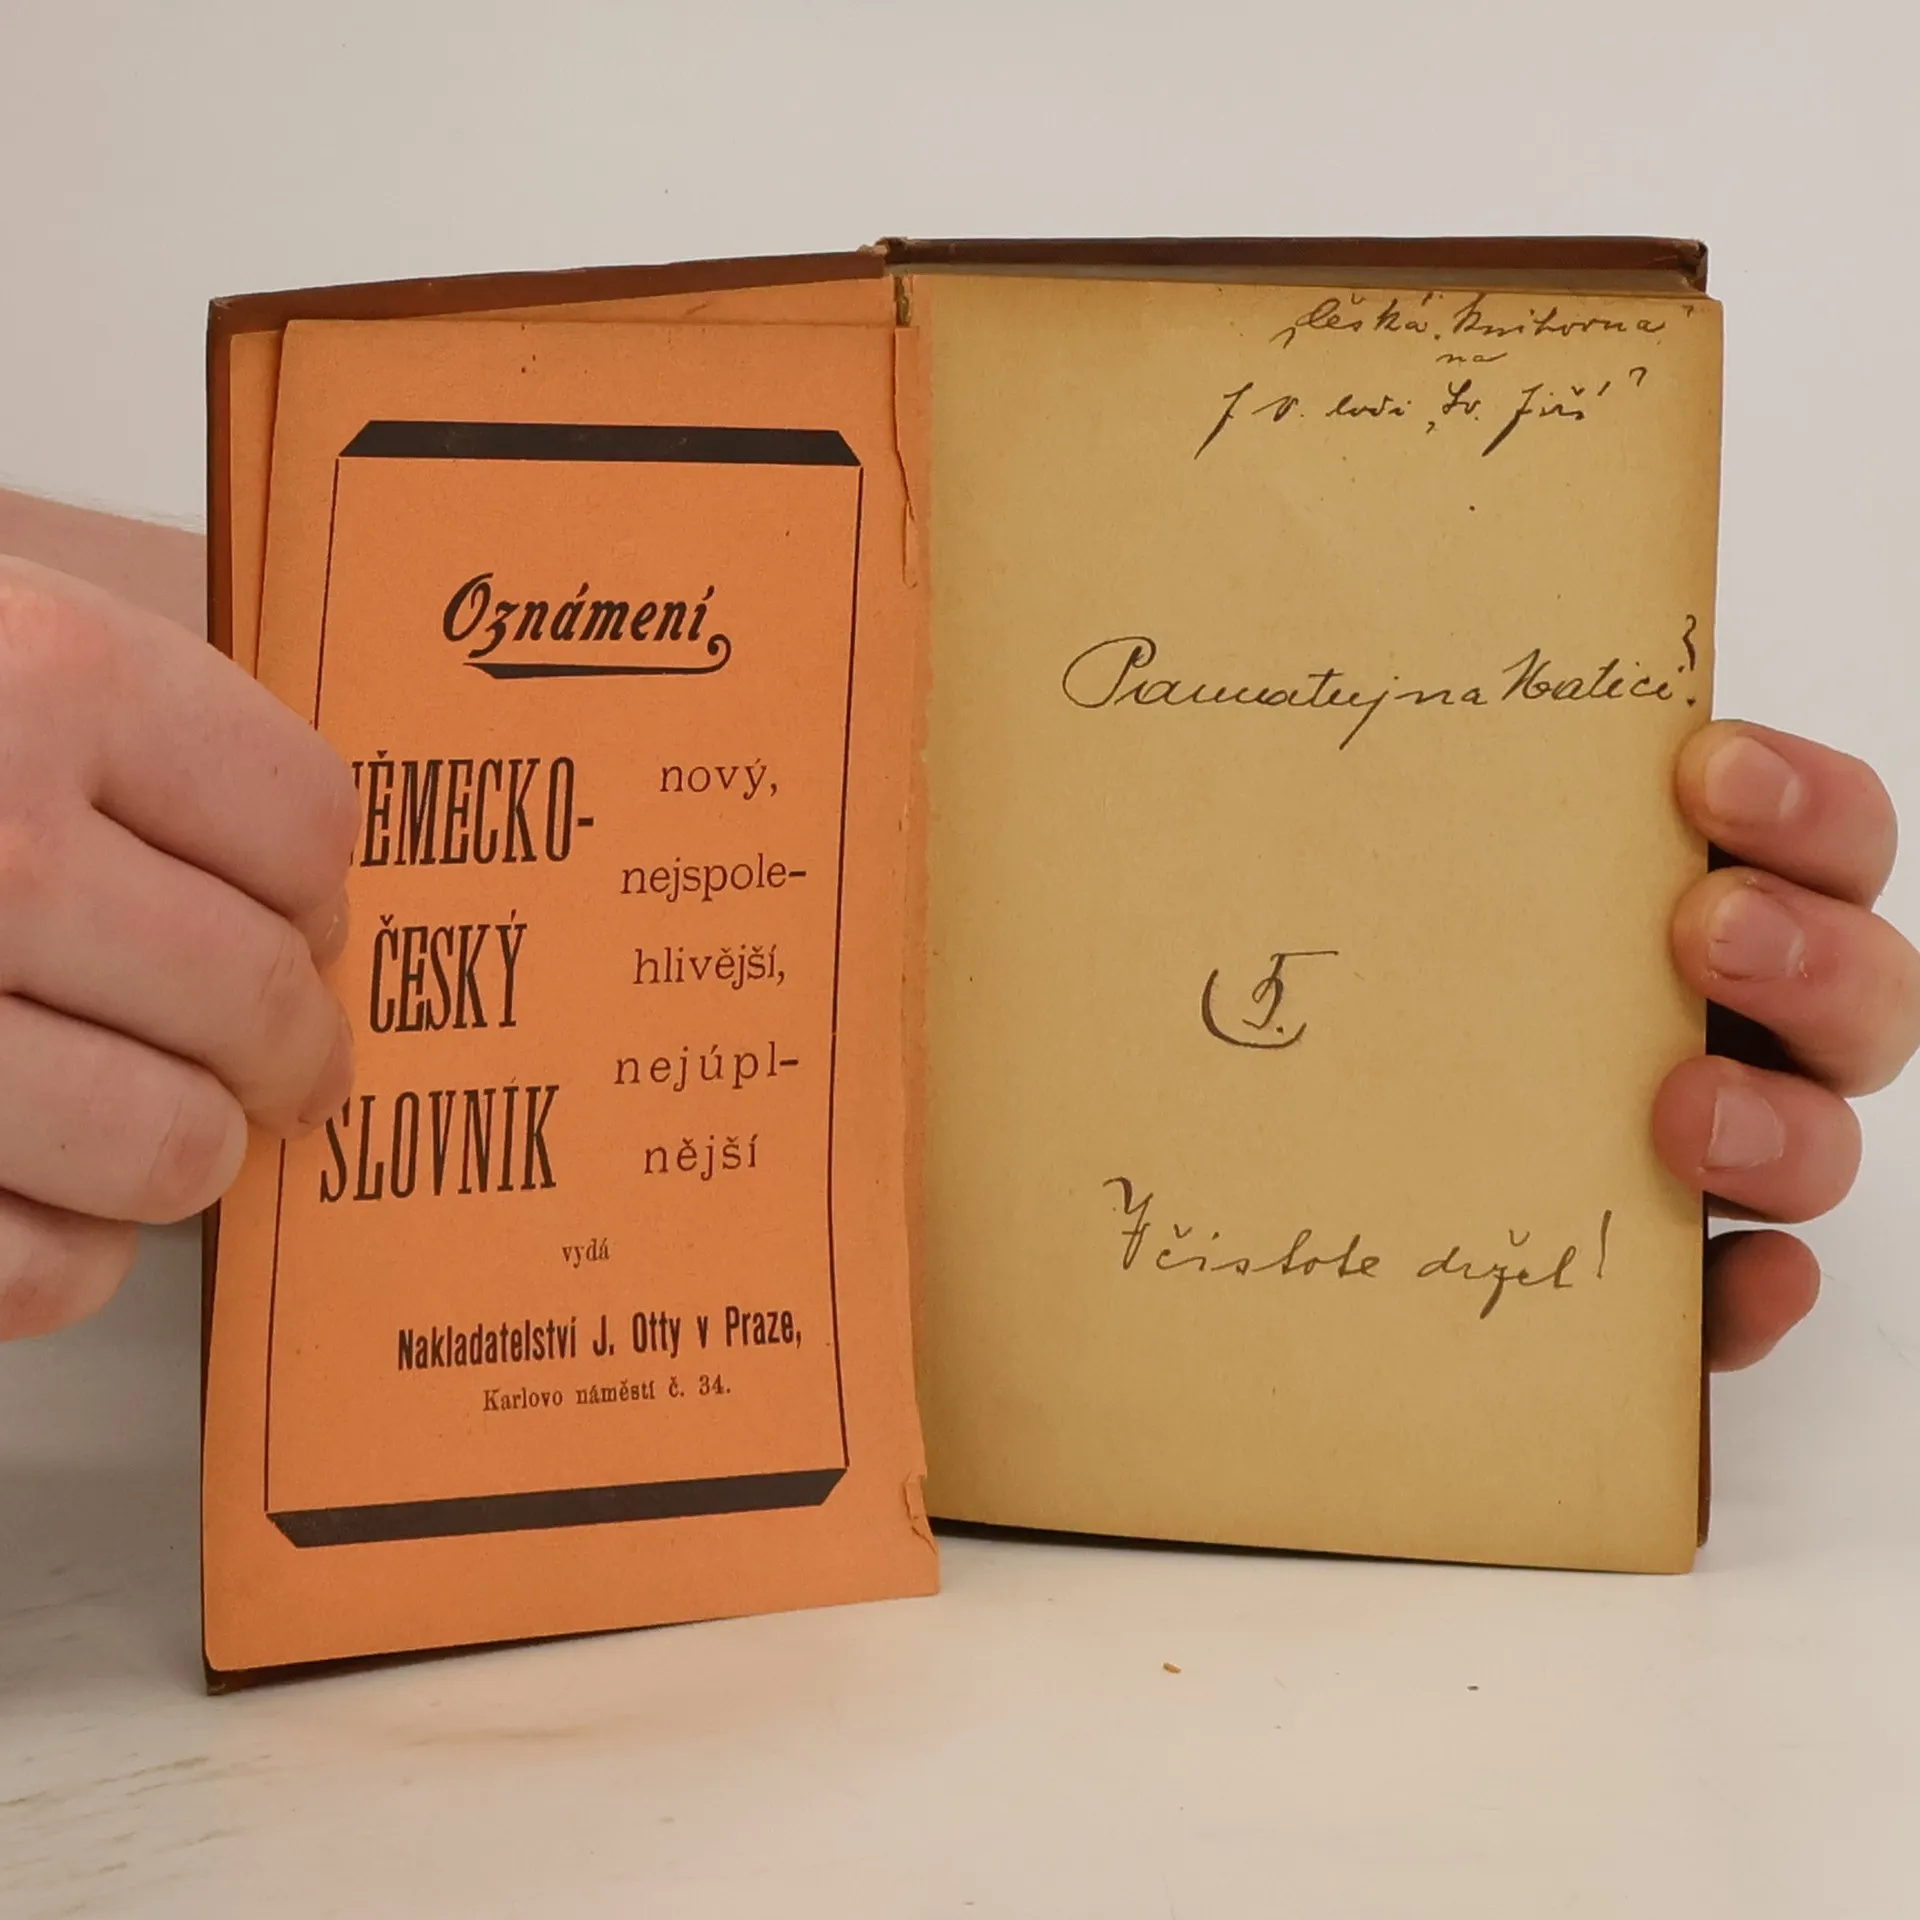 Oznámení
NĚMECKO-
ČESKÝ
SLOVNÍK
nový,
nejspole-
hlivější,
nejúpl-
nější
vydá
Nakladatelství J. Otty v Praze,
Karlovo náměstí č. 34.
„Česká knihovna"
na
J. V. lodi „Sv. Jiří"
Pamatuj na Matici!
5.
V čistotě držet!